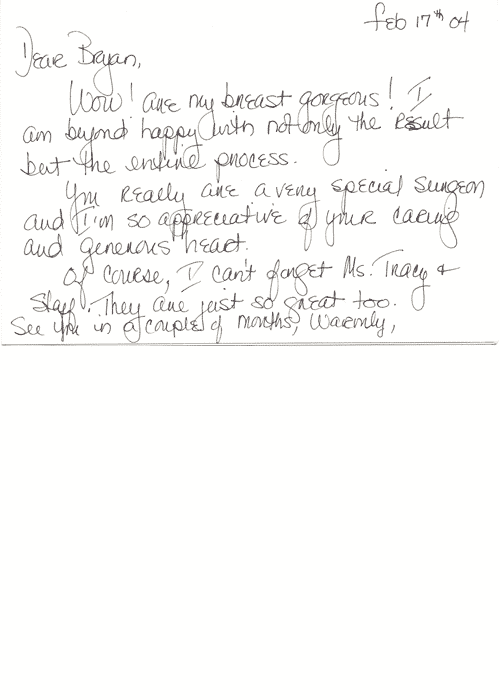 Feb 17th 04
Dear Bryan,
Wow! are my breast gorgeous! I
am beyond happy with not only the result
but the entire process.
You really are a very special surgeon
and I'm so appreciative of your caring
and generous heart.
Of course, I can't forget Ms. Tracy &
Staff. They are just so great too.
See you in a couple of months, Warmly,